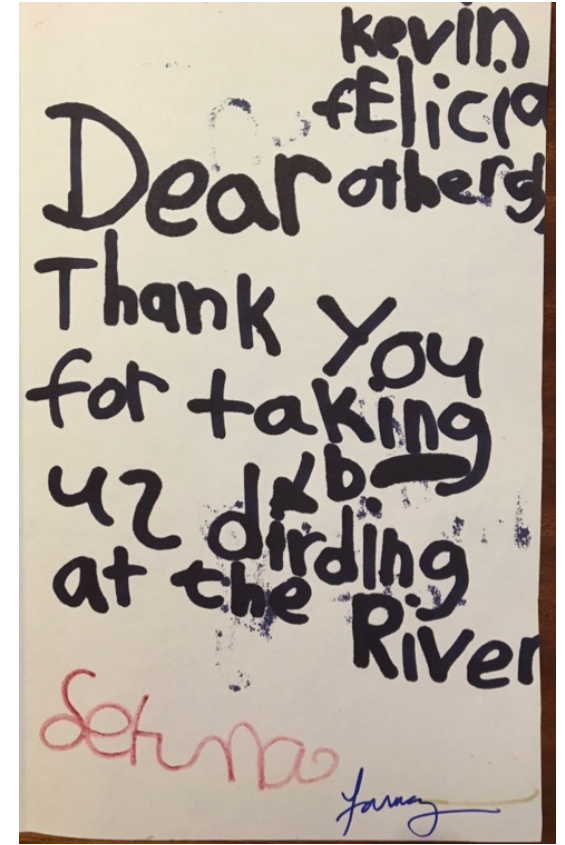 kevin
fElicia
Dear others,
Thank You
for taking
us b
dirding
at the
River